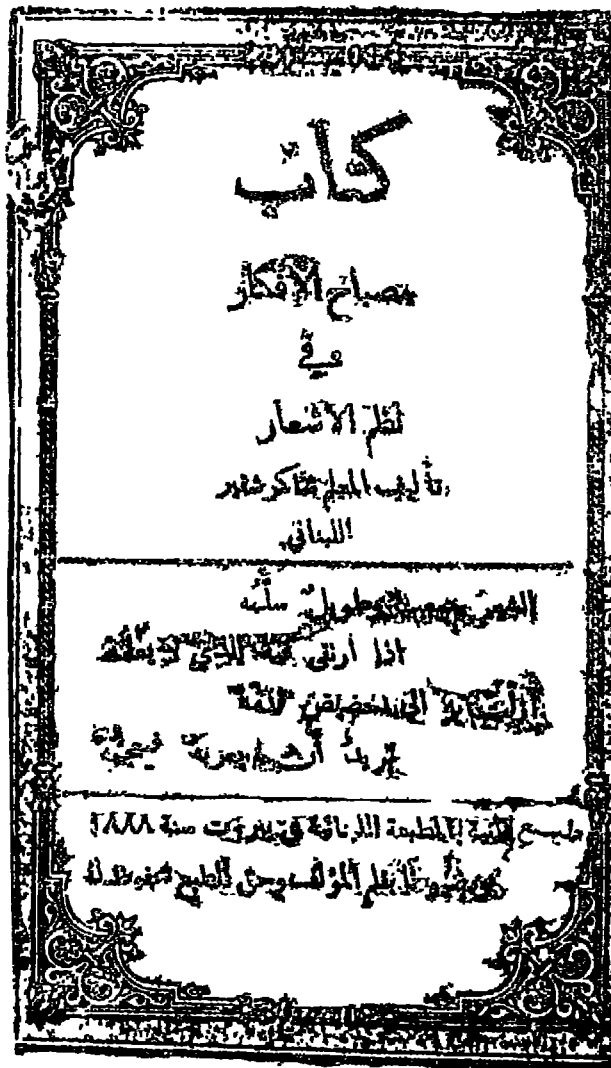 كتاب
مصباح الافكار
في
نظم الاشعار
تأليف المعلم شاكر شقير
اللبناني
الشعر صعب وطويل سلّمه
اذا ارتقى فيه الذي لا يعلمه
زلت به الى الحضيض قدمه
يريد أن يعربه فيعجمه
طبع بالمطبعة اللبنانية في بيروت سنة ١٨٨٨
المؤلف وحق الطبع محفوظ له